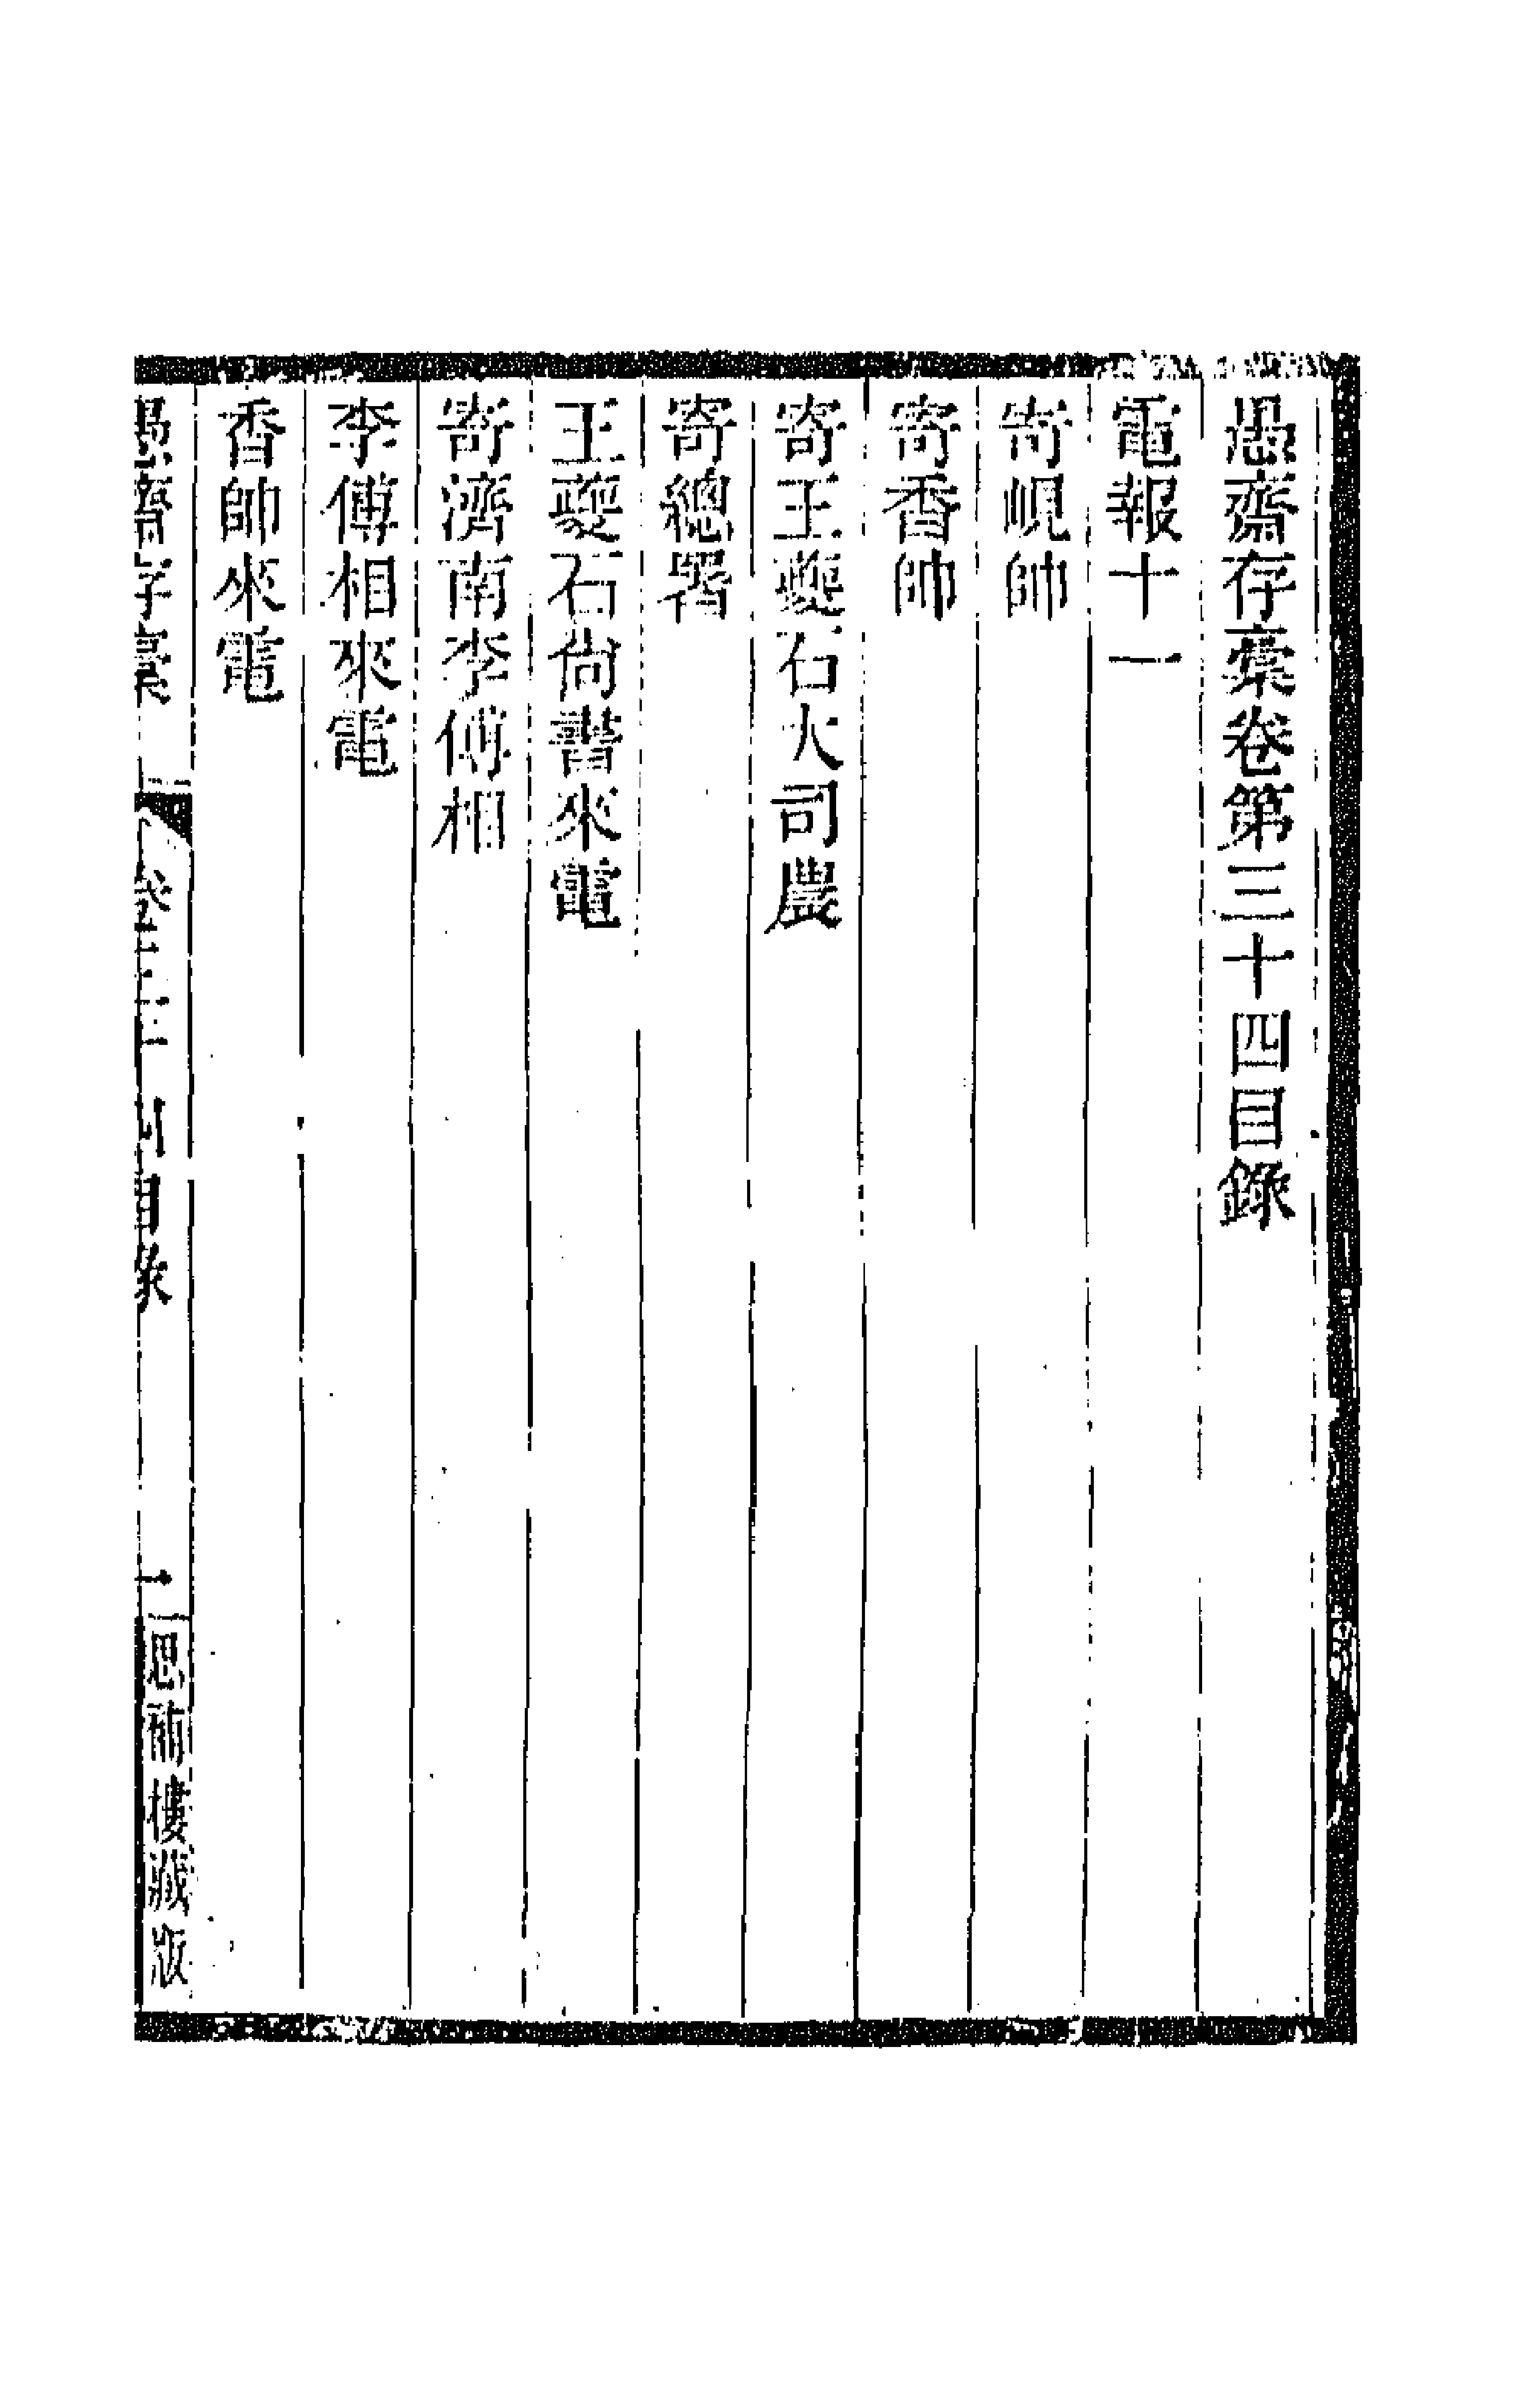 愚齋存稾卷第三十四目錄
電報十一
寄峴帥
寄香帥
寄王夔石大司農
寄總署
王夔石尙書來電
寄濟南李傅相
李傅相來電
香帥來電
愚齋存稾 卷三十四目錄 一 思補樓藏版